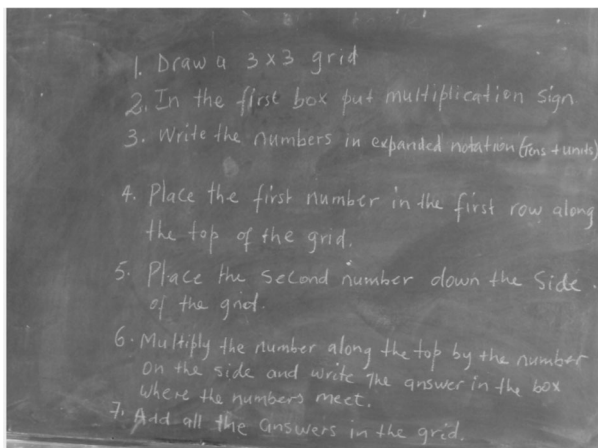 1. Draw a 3 x 3 grid
2. In the first box put multiplication sign
3. Write the numbers in expanded notation (tens + units)
4. Place the first number in the first row along
the top of the grid.
5. Place the second number down the side.
of the grid.
6. Multiply the number along the top by the number
on the side and write the answer in the box
where the numbers meet.
7. Add all the answers in the grid.